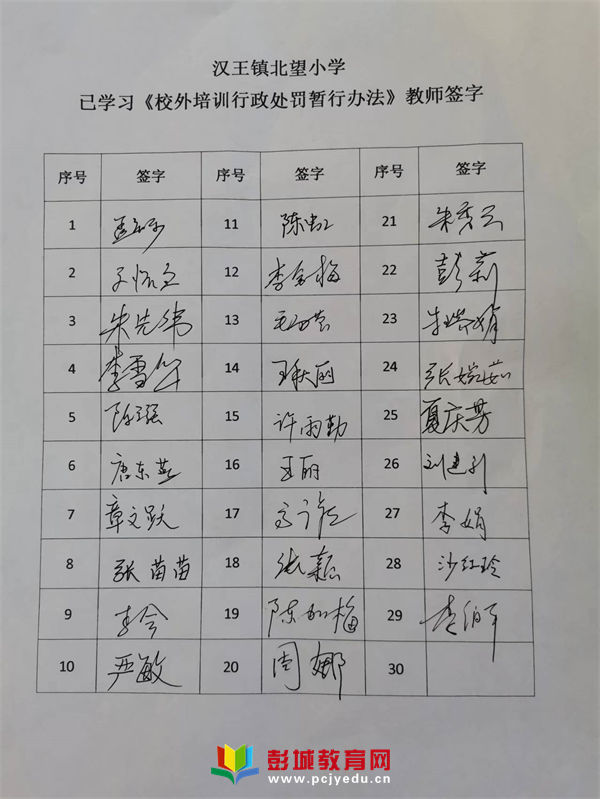 汉王镇北望小学
已学习《校外培训行政处罚暂行办法》教师签字
序号 签字 序号 签字 序号 签字
1 11 陈虹 21 朱秀云
2 12 李金梅 22 彭新
3 朱先伟 13 23
4 李雪华 14 王秋丽 24 张婉茹
5 陈强 15 许雨勤 25 夏庆芳
6 唐东燕 16 王丽 26 刘建利
7 章文跃 17 27 李娟
8 张苗苗 18 张颖 28 沙红玲
9 李会 19 陈如梅 29
10 严敏 20 周娜 30
彭城教育网
www.pcjyedu.cn